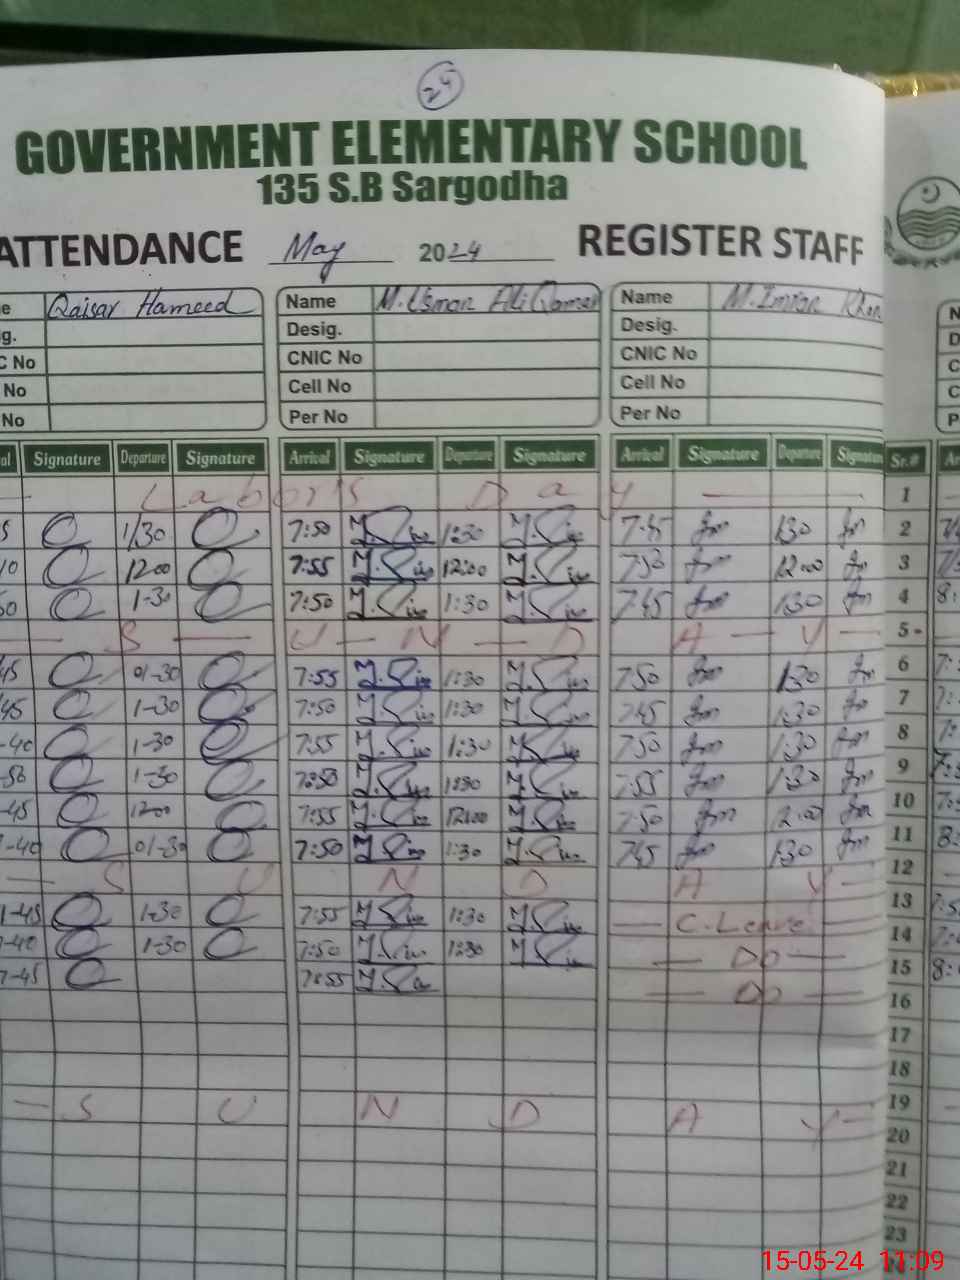 24
GOVERNMENT ELEMENTARY SCHOOL
135 S.B Sargodha
ATTENDANCE May 2024 REGISTER STAFF
e Qaisar Hameed Name M. Usman Ali Qamar Name M. Imran Khan N
g. Desig. Desig. D
C No CNIC No CNIC No C
No Cell No Cell No C
No Per No Per No P
al Signature Departure Signature Arrival Signature Departure Signature Arrival Signature Departure Signatur Sr.# Ar
Labor's Day 1
5 1/30 7:50 1:30 7:45 130 2
10 1200 7:55 12:00 7:50 12.00 3
50 1-30 7:50 1:30 7:45 130 4 8:
S U N D A Y 5
45 01-30 7:55 1:30 7:50 1:30 6 7:
45 1-30 7:50 1:30 7:45 1:30 7 7:
-40 1-30 7:55 1:30 7:50 1:30 8 7:
-50 1-30 7:50 1:30 7:55 1:30 9
-45 1200 7:55 12:00 7:50 12:00 10
7-40 01-30 7:50 1:30 7:45 130 11 8:
S U N D A Y 12
7-45 1-30 7:55 1:30 C. Leave 13
7-40 1-30 7:50 1:30 Do 14
7-45 7:55 Do 15 8:
16
17
18
S U N D A Y 19
20
21
22
23
15-05-24 11:09